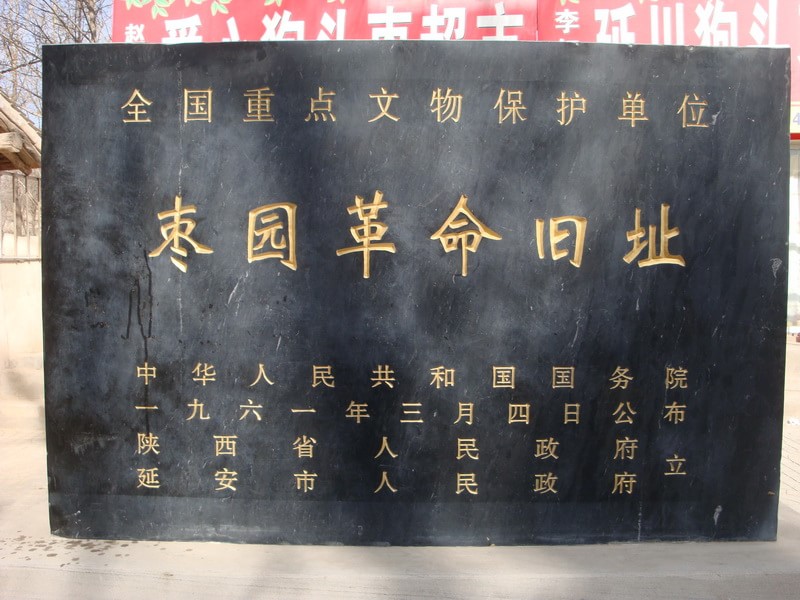 赵
李 延川狗头
全国重点文物保护单位
枣园革命旧址
中华人民共和国国务院
一九六一年三月四日公布
陕西省人民政府
延安市人民政府
立